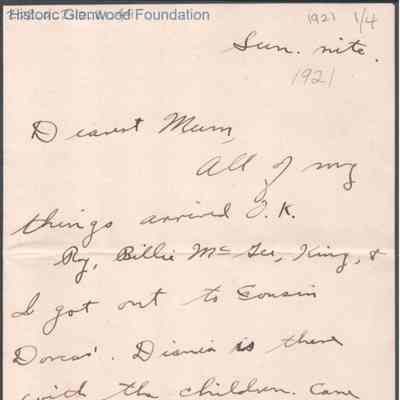 Historic Glenwood Foundation
1921 1/4
Sun. nite.
1921
Dearest Mum,
All of my
things arrived O.K.
Ray, Billie McGee, King, &
I got out to Cousin
Dorcas'. Disnia is there
with the children. Came